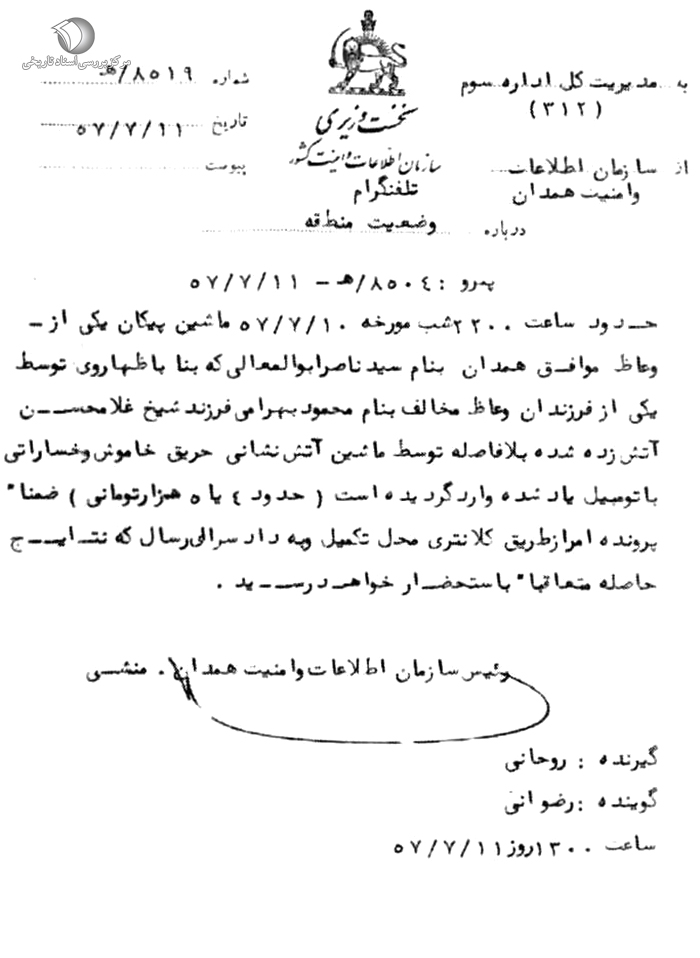 مرکز بررسی اسناد تاریخی
به مدیریت کل اداره سوم
(۳۱۲)
از سازمان اطلاعات
وامنیت همدان
نخست وزیری
سازمان اطلاعات و امنیت کشور
تلفنگرام
درباره وضعیت منطقه
شماره ۸۵۱۹/هـ
تاریخ ۵۷/۷/۱۱
پیوست
پیرو : ۸۵۰٤/هـ - ۵۷/۷/۱۱
حدود ساعت ۲۲۰۰ شب مورخه ۵۷/۷/۱۰ ماشین پیکان یکی از-
وعاظ موافق همدان بنام سید ناصر ابوالمعالی که بنا باظهاروی توسط
یکی از فرزندان وعاظ مخالف بنام محمود بهرامی فرزند شیخ غلامحسن
آتش زده شده بلافاصله توسط ماشین آتش نشانی حریق خاموش وخساراتی
باتومبیل یاد شده وارد گردیده است ( حدود ٤ یا ۵ هزارتومانی ) ضمنا"
پرونده امر ازطریق کلانتری محل تکمیل وبه دادسرا ارسال که نتایج
حاصله متعاقبا" باستحضار خواهد رسید .
رئیس سازمان اطلاعات وامنیت همدان . منشی
گیرنده : روحانی
گوینده : رضوانی
ساعت ۱۳۰۰ روز ۵۷/۷/۱۱